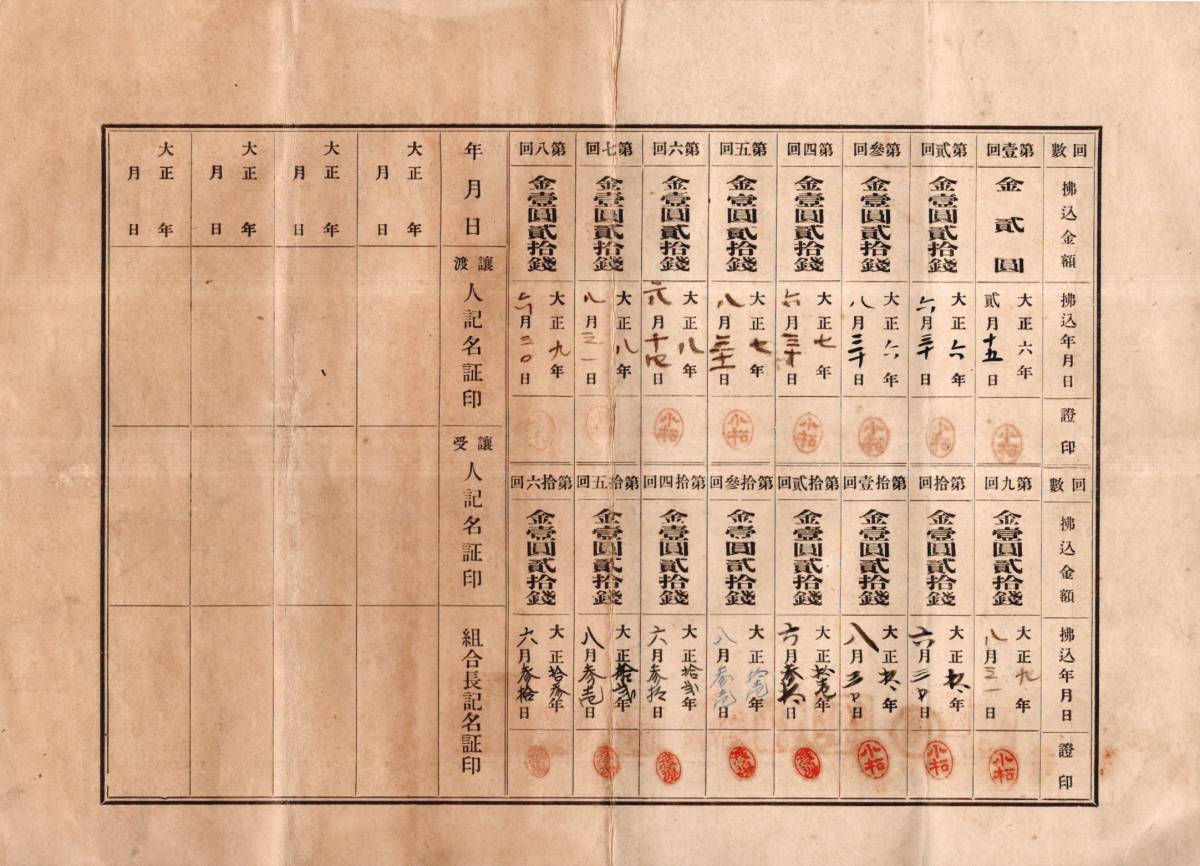 回數
拂込金額
拂込年月日
證印
第壹回
金貳圓
大正六年
貳月十五日
第貳回
金壹圓貳拾錢
大正六年
六月三十日
第參回
金壹圓貳拾錢
大正六年
八月三十日
第四回
金壹圓貳拾錢
大正七年
六月三十日
第五回
金壹圓貳拾錢
大正七年
八月三十一日
第六回
金壹圓貳拾錢
大正八年
六月日
第七回
金壹圓貳拾錢
大正八年
八月三一日
第八回
金壹圓貳拾錢
大正九年
六月三〇日
回數
拂込金額
拂込年月日
證印
第九回
金壹圓貳拾錢
大正九年
八月三一日
第拾回
金壹圓貳拾錢
大正年
六月三日
第拾壹回
金壹圓貳拾錢
大正年
八月三日
第拾貳回
金壹圓貳拾錢
大正拾壱年
六月参拾日
第拾參回
金壹圓貳拾錢
大正拾壱年
八月参壱日
第拾四回
金壹圓貳拾錢
大正拾弐年
六月参拾日
第拾五回
金壹圓貳拾錢
大正拾弐年
八月参壱日
第拾六回
金壹圓貳拾錢
大正拾参年
六月参拾日
年月日
讓渡人記名証印
讓受人記名証印
組合長記名証印
大正年
月日
大正年
月日
大正年
月日
大正年
月日